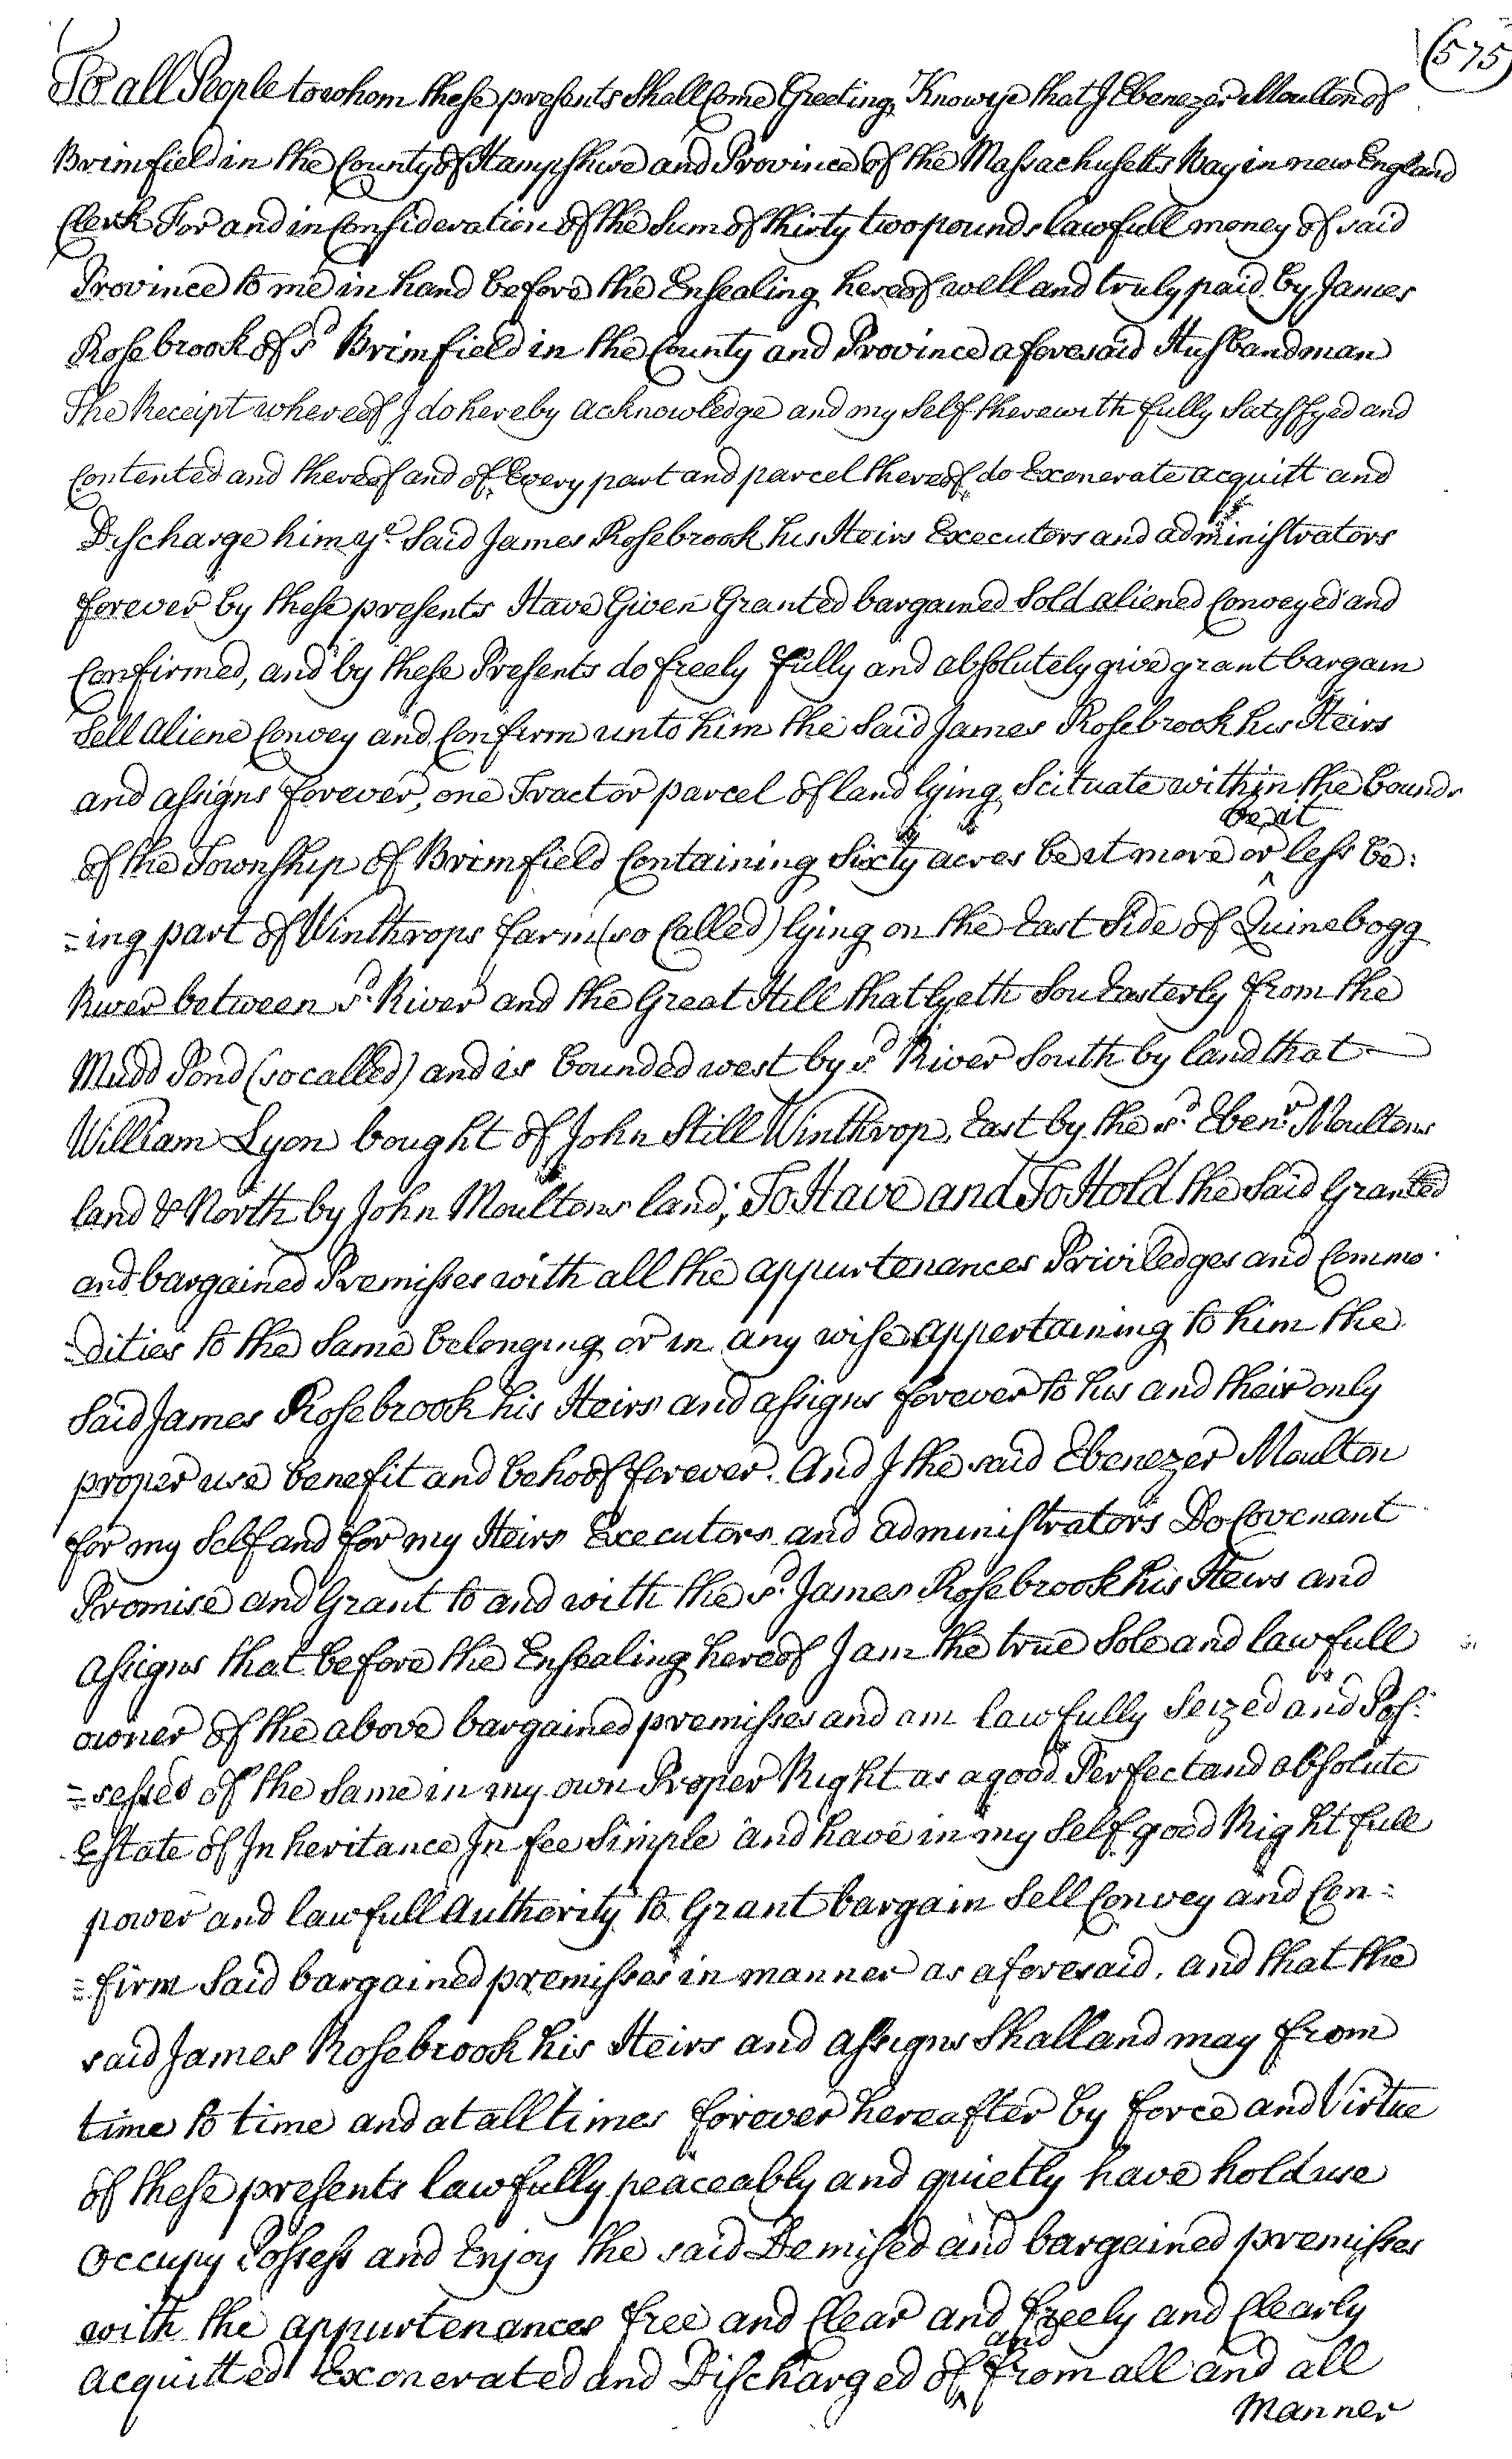 (575)
To all People to whom these presents Shall Come Greeting, Know ye that I Ebenezer Moulton of
Brimfield in the County of Hampshire and Province of the Massachusetts Bay in new England
Clerk For and in Consideration of the Sum of thirty two pounds lawfull money of said
Province to me in hand before the Ensealing hereof well and truly paid by James
Rosebrook of sd Brimfield in the County and Province aforesaid Husbandman
The Receipt whereof I do hereby acknowledge and my Self therewith fully Satisfyed and
Contented and thereof and of Every part and parcel thereof do Exonerate acquitt and
Discharge him ye Said James Rosebrook his Heirs Executors and administrators
forever by these presents Have Given Granted bargained Sold aliened Conveyed and
Confirmed, and by these Presents do freely fully and absolutely give grant bargain
Sell aliene Convey and Confirm unto him the Said James Rosebrook his Heirs
and assigns forever, one Tract or parcel of land lying Scituate within the bounds
of the Township of Brimfield Containing Sixty acres be it more or be it less be:
=ing part of Winthrops farm (so Called) lying on the East Side of Quinebogg
River between sd. River and the Great Hill that lyeth Sou Easterly from the
Mudd Pond (so called) and is bounded west by sd River South by land that
William Lyon bought of John Still Winthrop, East by the sd. Ebenr. Moultons
land & North by John Moultons land; To Have and To Hold the Said Granted
and bargained Premisses with all the appurtenances Priviledges and Commo
=dities to the Same belonging or in any wise appertaining to him the
Said James Rosebrook his Heirs and assigns forever to his and their only
proper use benefit and behoof forever. And I the said Ebenezer Moulton
for my Self and for my Heirs Executors and administrators Do Covenant
Promise and Grant to and with the sd. James Rosebrook his Heirs and
assigns that before the Ensealing hereof I am the true Sole and lawfull
owner of the above bargained premisses and am lawfully Seized and Pos:
=sessed of the Same in my own Proper Right as a good Perfect and absolute
Estate of Inheritance In fee Simple and have in my Self good Right full
power and lawfull Authority to Grant bargain Sell Convey and Con=
=firm Said bargained premisses in manner as aforesaid. and that the
said James Rosebrook his Heirs and assigns Shall and may from
time to time and at all times forever hereafter by force and Virtue
of these presents lawfully peaceably and quietly have hold use
occupy Possess and Enjoy the said Demised and bargained premisses
with the appurtenances free and Clear and freely and Clearly
acquitted Exonerated and Discharged of and from all and all
Manner